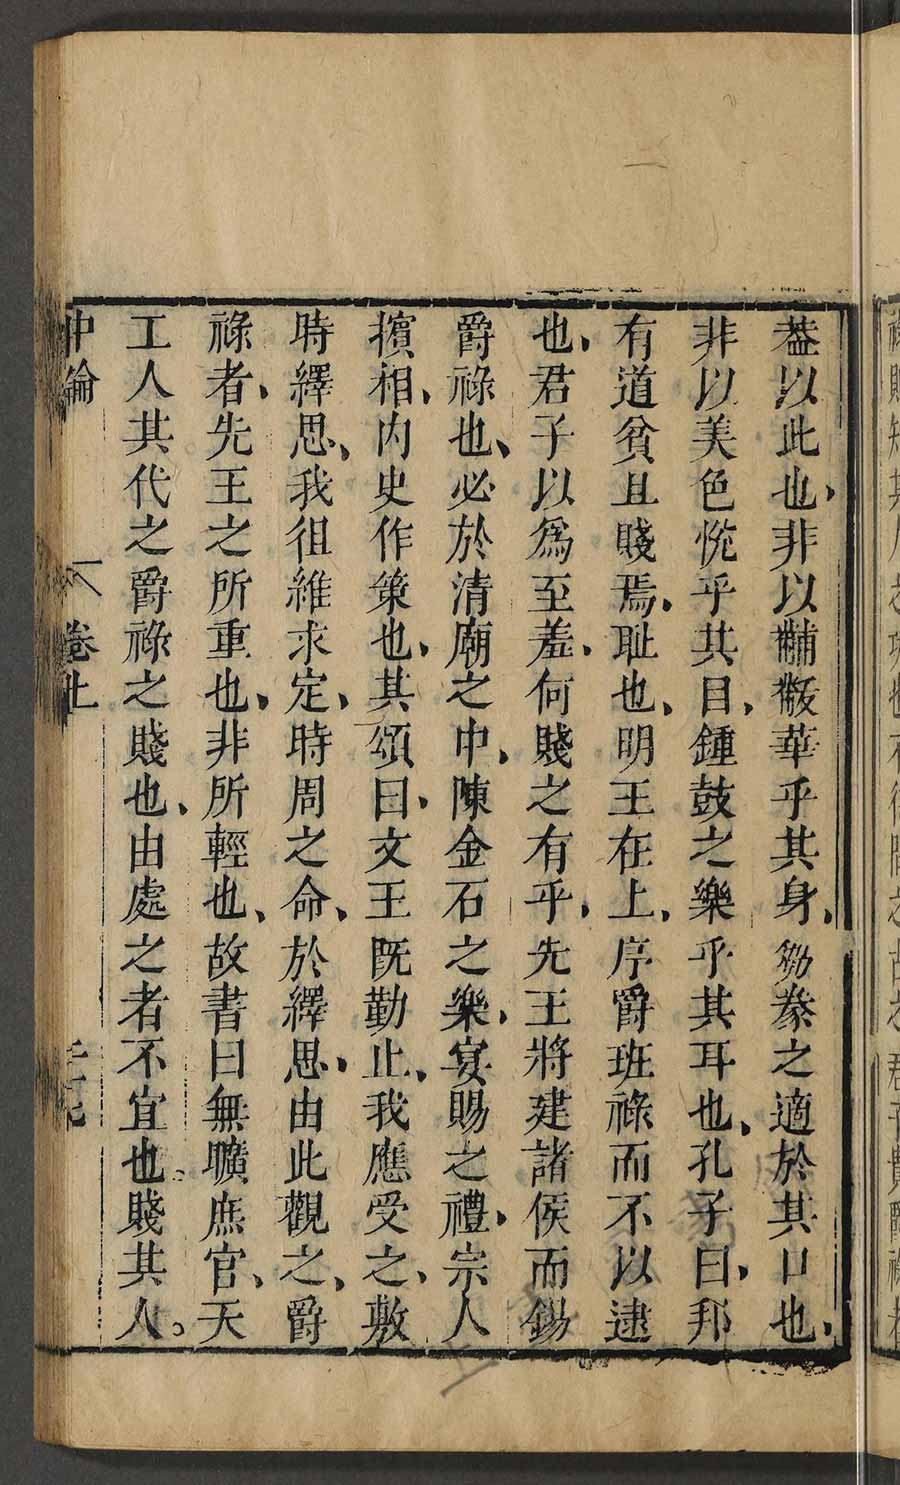 葢以此也、非以黼黻華乎其身、芻豢之適於其口也、
非以美色悅乎其目、鍾鼓之樂乎其耳也、孔子曰、邦
有道貧且賤焉、耻也、明王在上、序爵班祿而不以逮
也、君子以爲至羞、何賤之有乎、先王將建諸侯而錫
爵祿也、必於清廟之中、陳金石之樂、宴賜之禮、宗人
擯相、內史作策也、其頌曰、文王既勤止、我應受之、敷
時繹思、我徂維求定、時周之命、於繹思、由此觀之、爵
祿者、先王之所重也、非所輕也、故書曰無曠庶官、天
工人其代之爵祿之賤也、由處之者不宜也賤其人。
中論 卷上